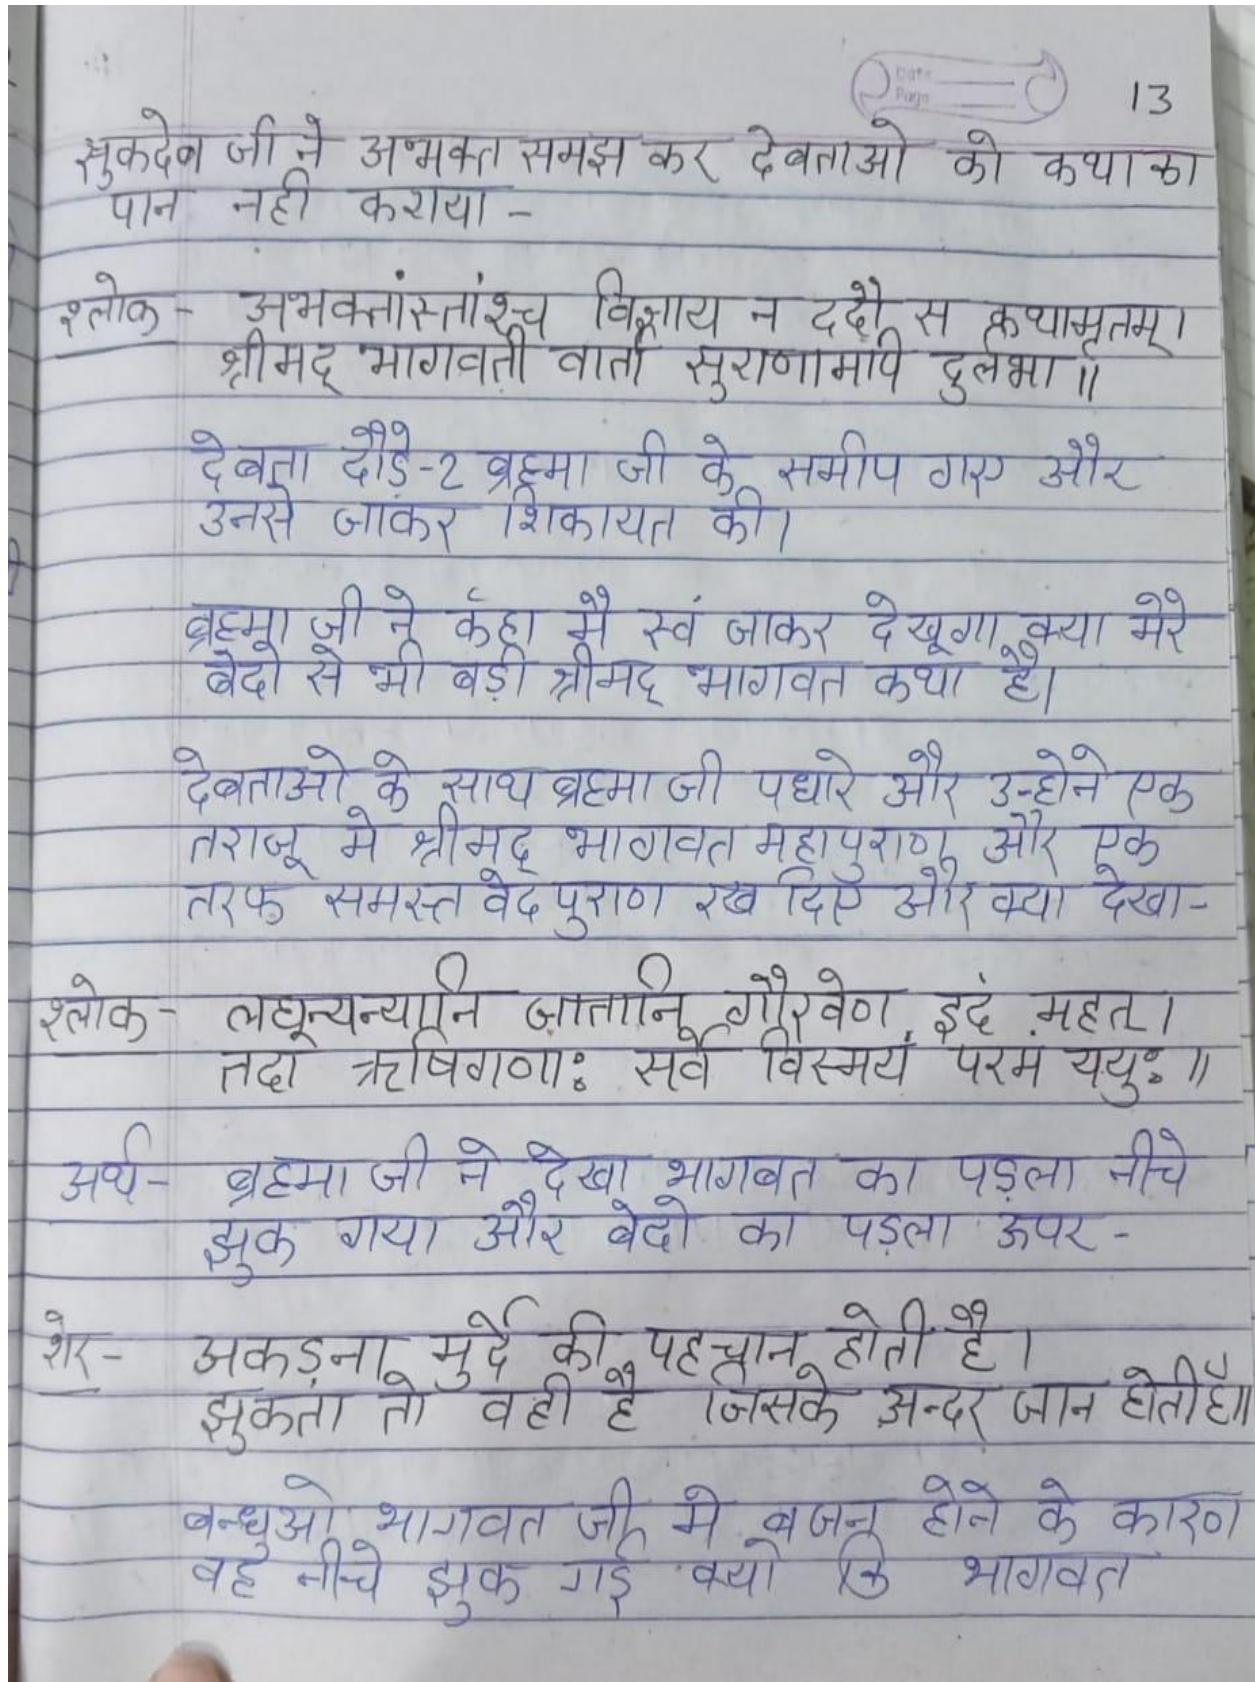 Date
Page
13
सुकदेब जी ने अभक्त समझ कर देबताओ को कथा का
पान नही कराया -
श्लोक - अभक्तांस्तांश्च विज्ञाय न ददौ स कथामृतम्।
श्रीमद् भागवती वार्ता सुराणामपि दुर्लभा॥
देबता दौडे़-2 ब्रह्मा जी के समीप गए और
उनसे जाकर शिकायत की।
ब्रह्मा जी ने कहा मै स्वं जाकर देखूगा क्या मेरे
बेदो से भी बड़ी श्रीमद् भागवत कथा है।
देबताओ के साथ ब्रह्मा जी पधारे और उन्होने एक
तराजू मे श्रीमद् भागवत महापुराण और एक
तरफ समस्त वेद पुराण रख दिए और क्या देखा-
श्लोक- लघून्यन्यानि जातानि गौरवेण इदं महत्।
तदा ऋषिगणाः सर्वे विस्मयं परमं ययुः॥
अर्थ- ब्रह्मा जी ने देखा भागबत का पड़ला नीचे
झुक गया और बेदो का पड़ला ऊपर-
शेर- अकड़ना मुर्दे की पहचान होती है।
झुकता तो वही है जिसके अन्दर जान होती है॥
बन्धुओ भागवत जी मे बजन होने के कारण
वह नीचे झुक गई क्यो कि भागवत